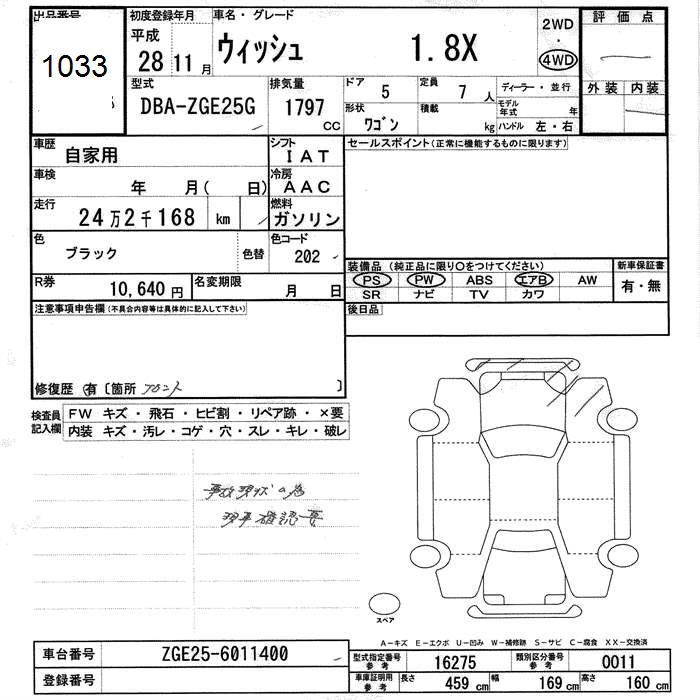 出品番号 初度登録年月 車名・グレード 2WD 評価点
1033 平成 28 11月 ウィッシュ 1.8X ・ 4WD
外装 内装
型式 排気量 ドア 定員 ディーラー・並行
DBA-ZGE25G 1797 CC 5 7人 モデル年式 年
形状 積載
ワゴン kg ハンドル 左・右
車歴 シフト セールスポイント(正常に機能するものに限ります)
自家用 IAT
車検 冷房
年 月( 日) AAC
走行 燃料
24万2千168 km ガソリン
色 色コード
ブラック 色替 202
装備品 (純正品に限り○をつけてください) 新車保証書
R券 名変期限 PS PW ABS エアB AW 有・無
10,640円 月 日 SR ナビ TV カワ
注意事項申告欄(不具合内容等は具体的に記入して下さい) 後日品
修復歴 有 〔箇所 フロント 〕
検査員 FW キズ・飛石・ヒビ割・リペア跡・×要
記入欄 内装 キズ・汚レ・コゲ・穴・スレ・キレ・破レ
事故現状の為
現車確認要
スペア
A-キズ E-エクボ U-凹み W-補修跡 S-サビ C-腐食 XX-交換済
車台番号 ZGE25-6011400 型式指定番号参考 16275 類別区分番号参考 0011
登録番号 車庫証明用参考 長さ 459 cm 幅 169 cm 高さ 160 cm